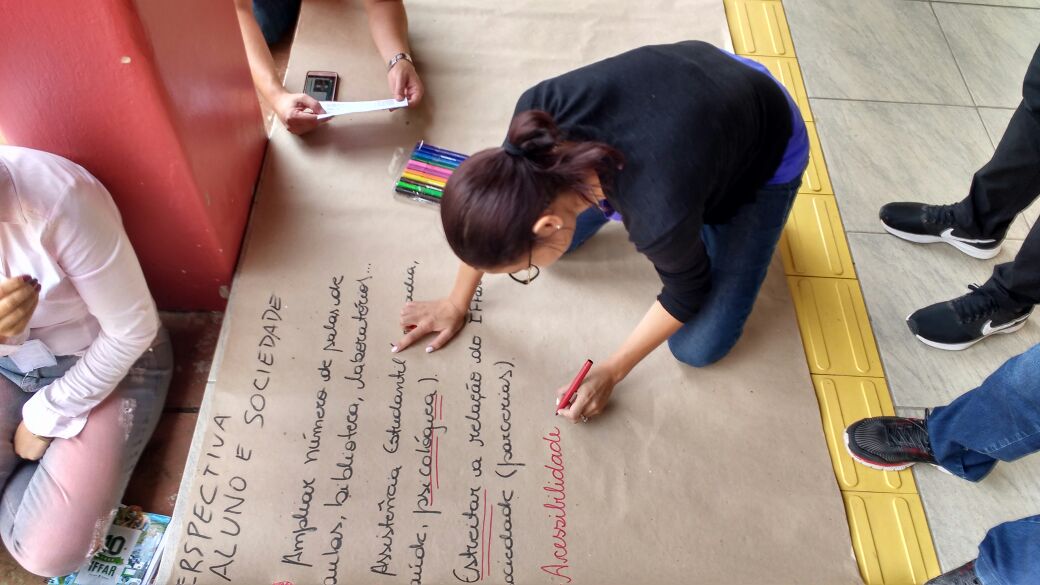 PERSPECTIVA
ALUNO E SOCIEDADE
Ampliar número de salas de
aulas, biblioteca, laboratórios...
Assistência estudantil
saúde, psicológica).
Estreitar a relação do IFFar
sociedade (parcerias).
Acessibilidade
10
IFFAR